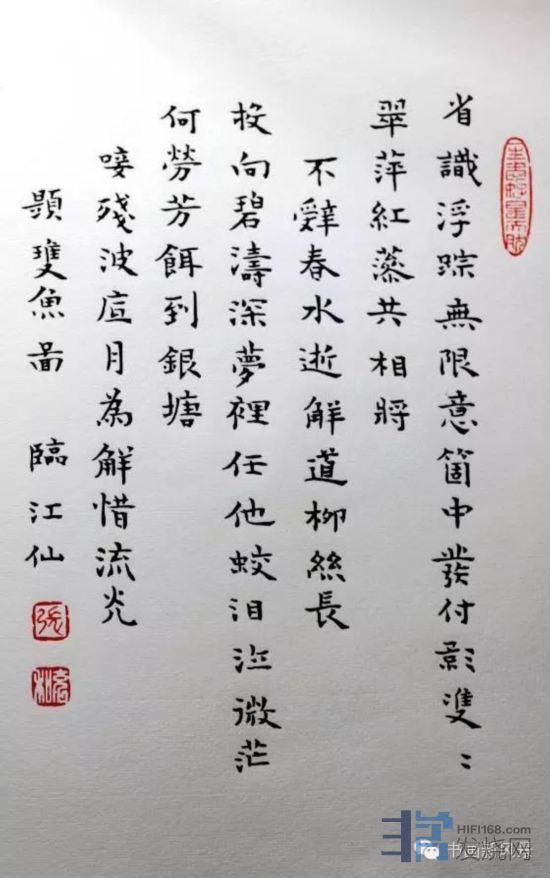 省識浮踪無限意箇中發付影雙〻
翠萍紅蕊共相將
不辭春水逝解道柳絲長
投向碧濤深夢裡任他蛟泪泣微茫
何勞芳餌到銀塘
唼殘波底月為解惜流光
題雙魚圖 臨江仙
張
HIFI168.com
发烧网